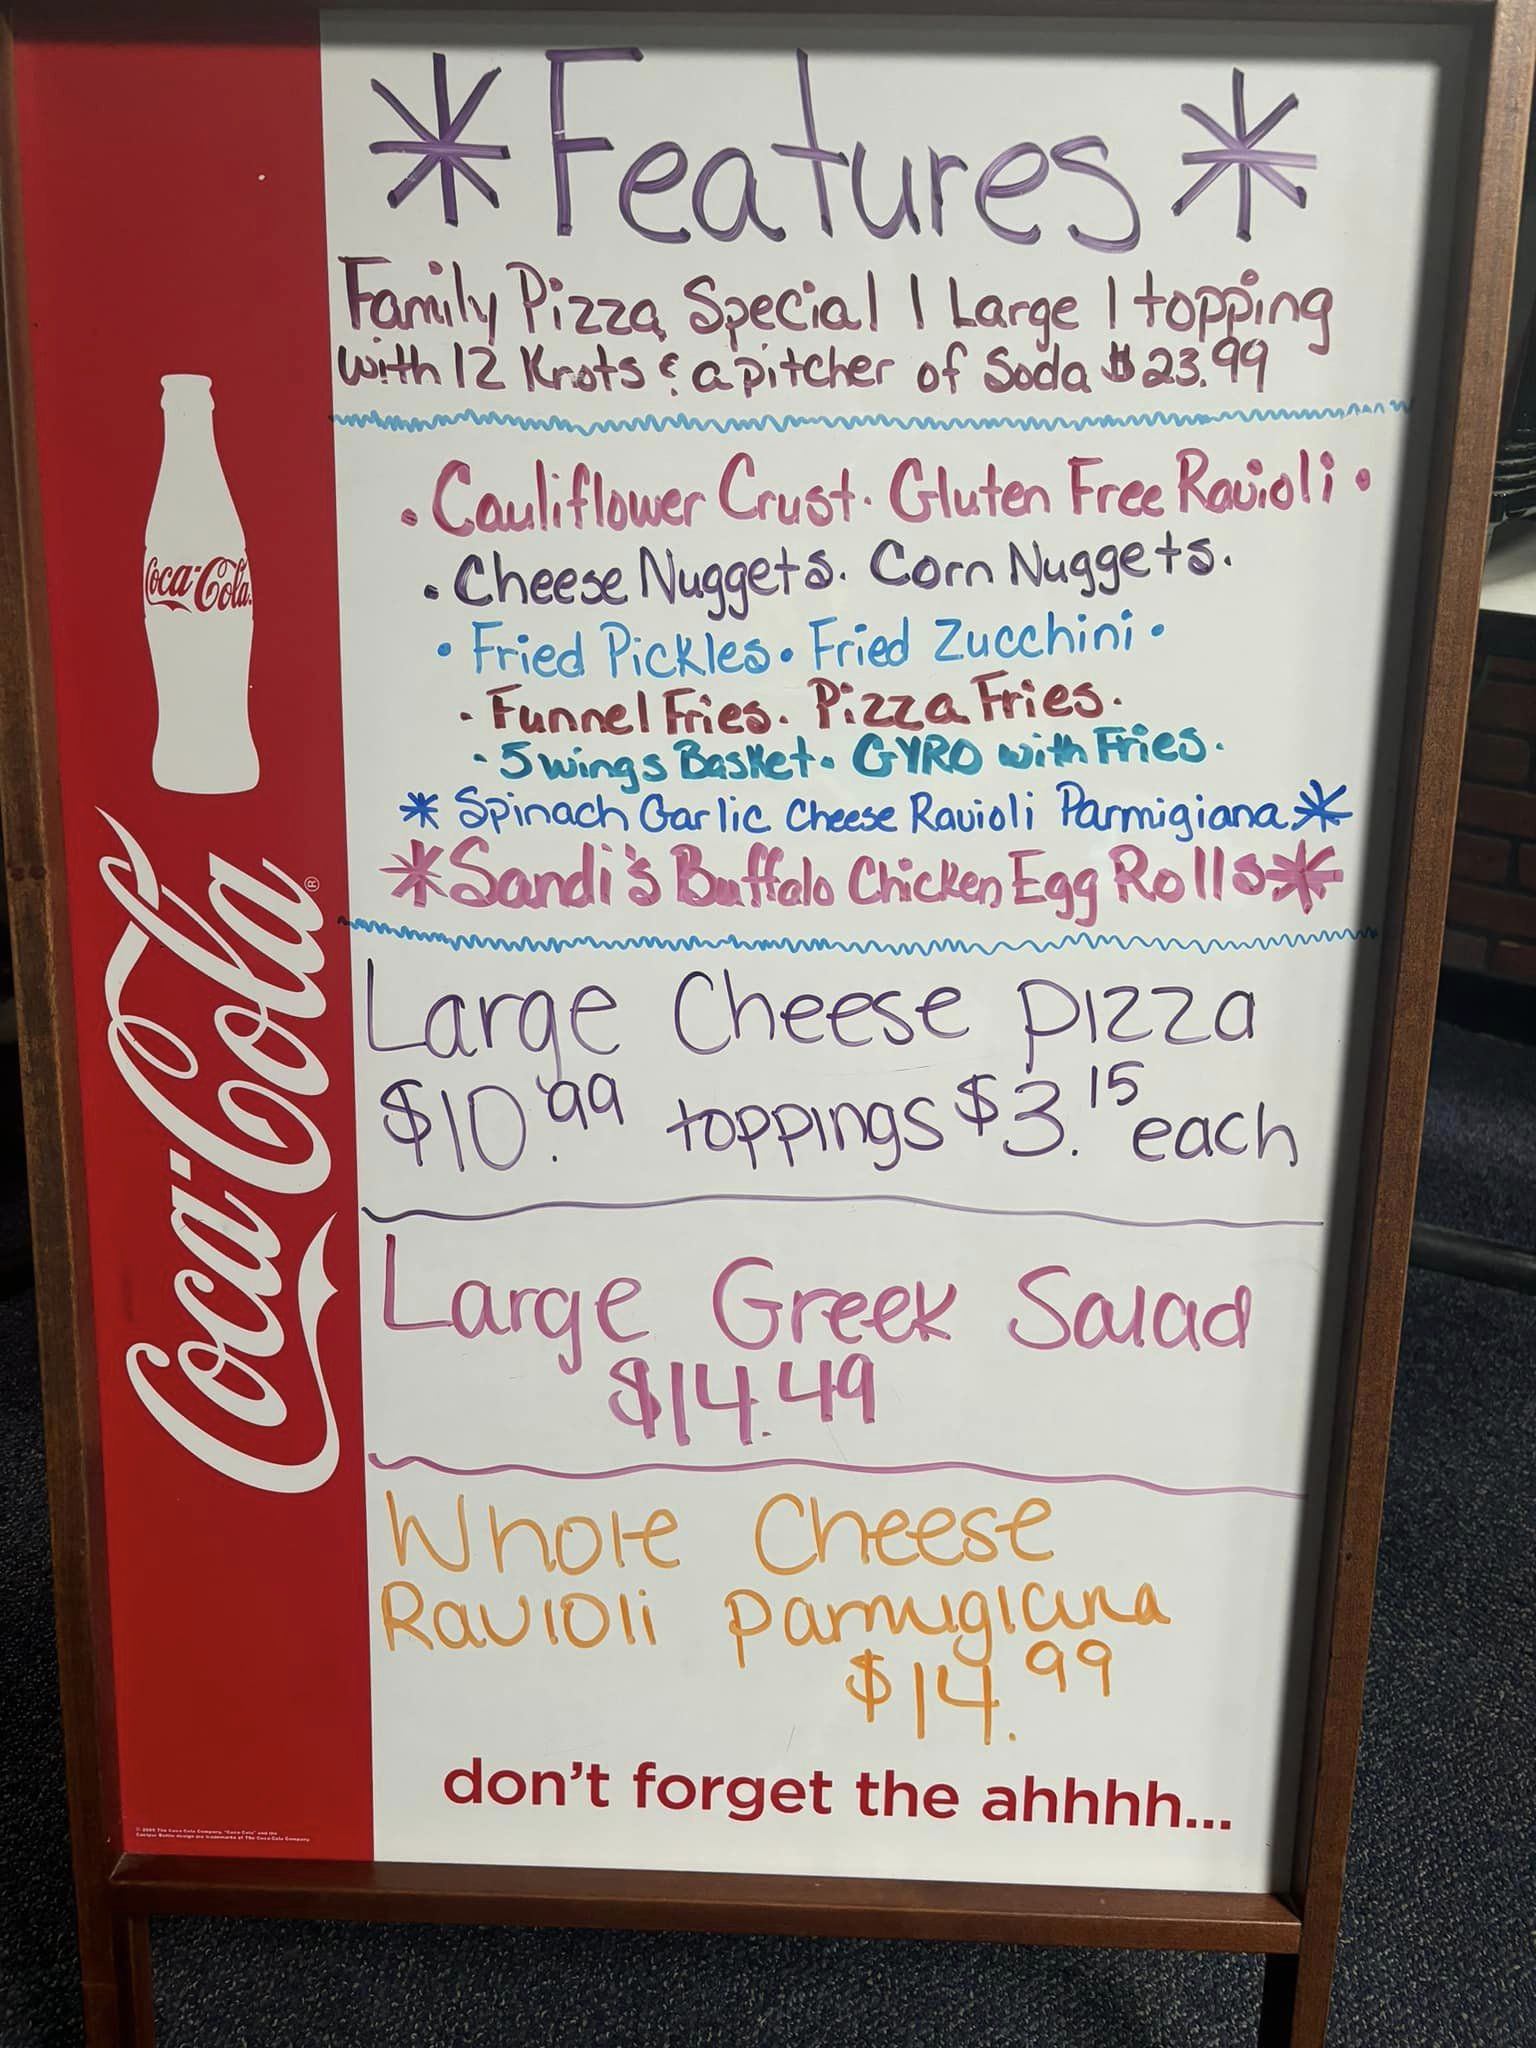 *Features*
Family Pizza Special 1 Large 1 topping
with 12 Knots & a pitcher of Soda $23.99
• Cauliflower Crust • Gluten Free Ravioli •
• Cheese Nuggets • Corn Nuggets •
• Fried Pickles • Fried Zucchini •
• Funnel Fries • Pizza Fries •
• 5 wings Basket • GYRO with Fries •
* Spinach Garlic Cheese Ravioli Parmigiana *
*Sandi's Buffalo Chicken Egg Rolls*
Large Cheese pizza
$10.99 toppings $3.15 each
Large Greek Salad
$14.49
Whole Cheese
Ravioli parmigiana
$14.99
don't forget the ahhhh...
Coca-Cola
Coca-Cola®
© 2005 The Coca-Cola Company. "Coca-Cola" and the
Contour Bottle design are trademarks of The Coca-Cola Company.